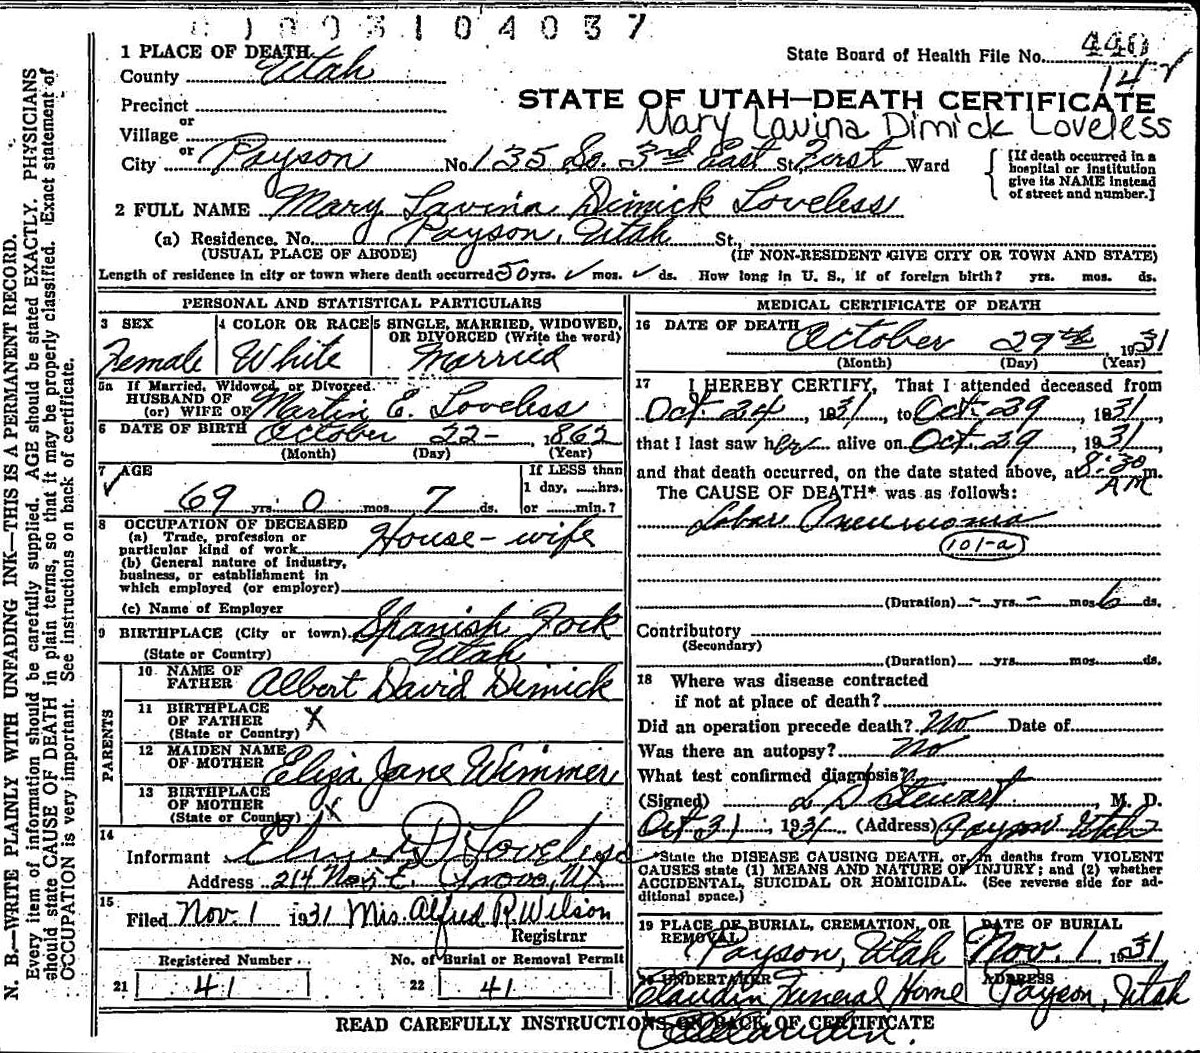 1003104037
1 PLACE OF DEATH
State Board of Health File No. 440
County Utah
14
Precinct
STATE OF UTAH—DEATH CERTIFICATE
or
Village
Mary Lavina Dimick Loveless
or
City Payson No. 135 So. 3rd East St. First Ward
[If death occurred in a hospital or institution give its NAME instead of street and number.]
2 FULL NAME Mary Lavina Dimick Loveless
(a) Residence, No. Payson, Utah St.,
(USUAL PLACE OF ABODE) (IF NON-RESIDENT GIVE CITY OR TOWN AND STATE)
Length of residence in city or town where death occurred 50 yrs. ✓ mos. ✓ ds. How long in U. S., if of foreign birth? yrs. mos. ds.
PERSONAL AND STATISTICAL PARTICULARS
3 SEX
Female
4 COLOR OR RACE
White
5 SINGLE, MARRIED, WIDOWED, OR DIVORCED (Write the word)
Married
5a If Married, Widowed, or Divorced.
HUSBAND OF
(or) WIFE OF Martin E. Loveless
6 DATE OF BIRTH October 22- , 1862
(Month) (Day) (Year)
7 AGE
69 yrs. 0 mos. 7 ds.
If LESS than
1 day, ......hrs.
or ......min.?
8 OCCUPATION OF DECEASED
(a) Trade, profession or
particular kind of work House-wife
(b) General nature of industry,
business, or establishment in
which employed (or employer)
(c) Name of Employer
9 BIRTHPLACE (City or town) Spanish Fork
(State or Country) Utah
PARENTS
10 NAME OF
FATHER Albert David Dimick
11 BIRTHPLACE
OF FATHER X
(State or Country)
12 MAIDEN NAME
OF MOTHER Eliza Jane Wimmer
13 BIRTHPLACE
OF MOTHER X
(State or Country)
14
Informant D. Loveless
Address 214 No. 5 E. Provo, Ut.
15
Filed Nov. 1 1931 Mrs. Alfred R. Wilson
Registrar
Registered Number
No. of Burial or Removal Permit
21 41
22 41
MEDICAL CERTIFICATE OF DEATH
16 DATE OF DEATH October 29th 1931
(Month) (Day) (Year)
17 I HEREBY CERTIFY, That I attended deceased from
Oct. 24, 1931, to Oct. 29, 1931,
that I last saw her alive on Oct. 29, 1931
and that death occurred, on the date stated above, at 8:30 m.
AM
The CAUSE OF DEATH* was as follows:
Lobar Pneumonia
101-a
(Duration) - yrs. - mos. 6 ds.
Contributory
(Secondary)
(Duration) yrs. mos. ds.
18 Where was disease contracted
if not at place of death?
Did an operation precede death? No Date of
Was there an autopsy? No
What test confirmed diagnosis?
(Signed) L D Stewart, M. D.
Oct 31, 1931 (Address) Payson Utah
*State the DISEASE CAUSING DEATH, or, in deaths from VIOLENT
CAUSES state (1) MEANS AND NATURE OF INJURY; and (2) whether
ACCIDENTAL, SUICIDAL OR HOMICIDAL. (See reverse side for ad-
ditional space.)
19 PLACE OF BURIAL, CREMATION, OR
REMOVAL
Payson, Utah
DATE OF BURIAL
Nov. 1 1931
20 UNDERTAKER
Claudin Funeral Home
ADDRESS
Payson, Utah
READ CAREFULLY INSTRUCTIONS ON BACK OF CERTIFICATE
Claudin.
N. B.—WRITE PLAINLY WITH UNFADING INK—THIS IS A PERMANENT RECORD.
Every item of information should be carefully supplied. AGE should be stated EXACTLY. PHYSICIANS
should state CAUSE OF DEATH in plain terms, so that it may be properly classified. Exact statement of
OCCUPATION is very important. See instructions on back of certificate.